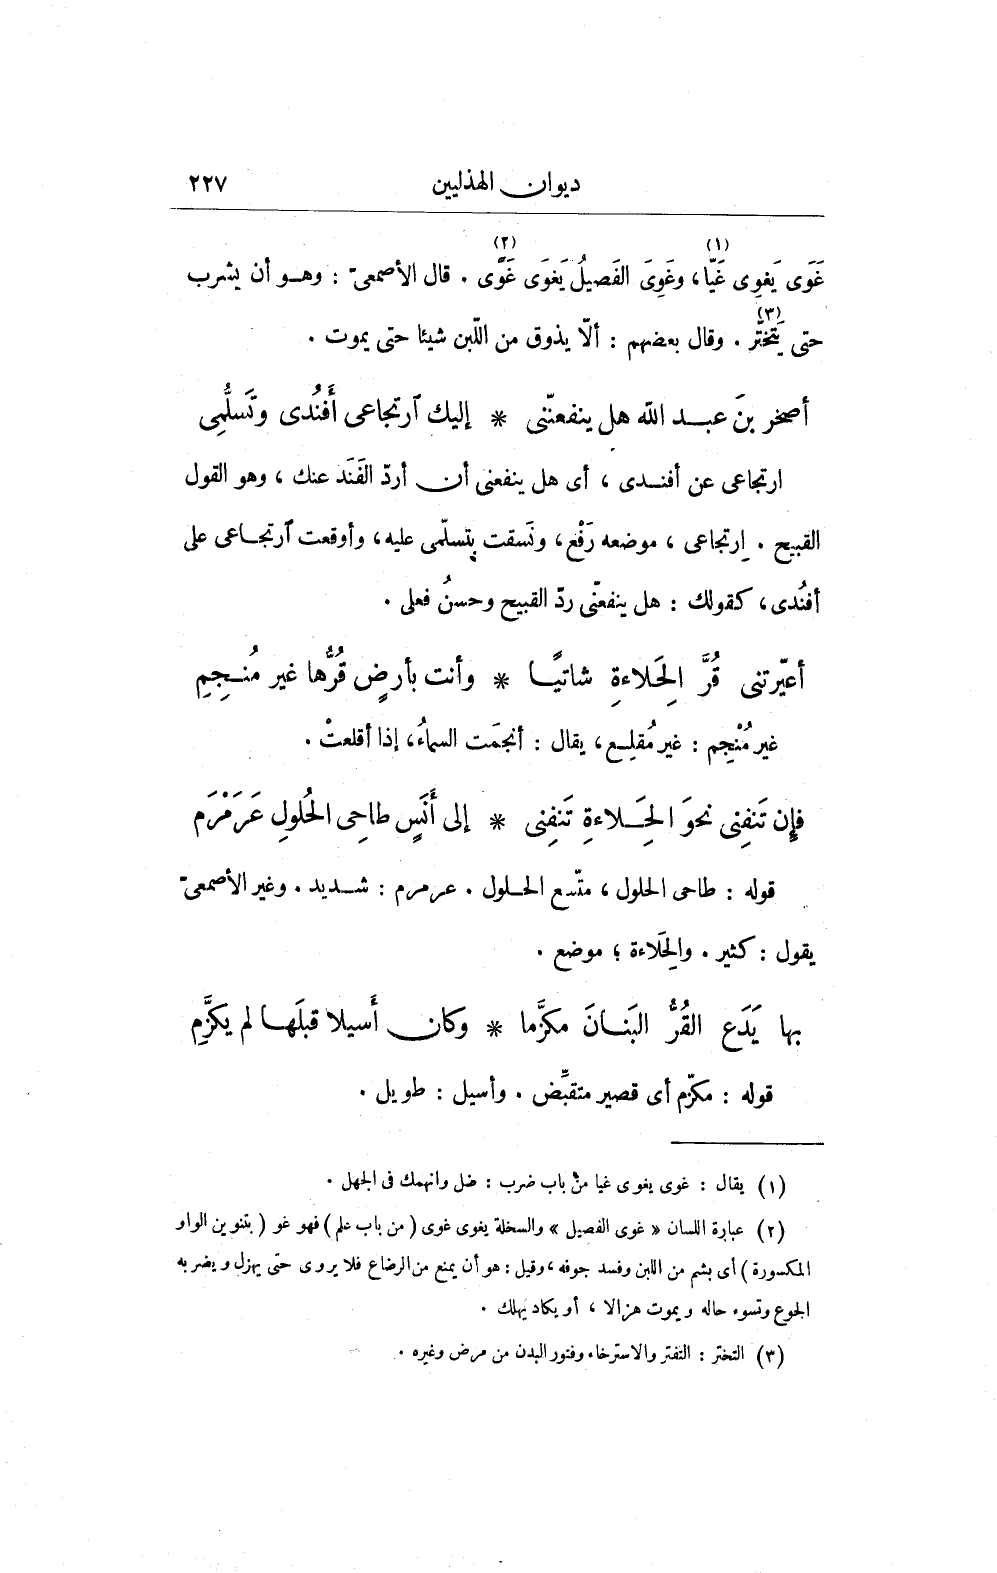 ديوان الهذليين ٢٢٧
غَوَى يَغوِى غَيّا(١)، وغَوِىَ الفَصيلُ يَغوَى غَوًى(٢) . قال الأصمعىّ : وهـو أن يشرب
حتى يَتَخَثَّر(٣) . وقال بعضهم : ألّا يذوق من اللّبن شيئا حتى يموت .
أصخر بنَ عبـد الله هل ينفعنّنى * إليك ٱرتجاعى أَفنُدى وتَسلُّمِى
ارتجاعى عن أفنـدى ، أى هل ينفعنى أن أردّ الفَنَد عنك ، وهو القول
القبيح . اِرتجاعى ، موضعه رَفْع، ونَسقت بِتسلّمى عليه، وأوقعت ٱرتجـاعى على
أفنُدى، كقولك : هل ينفعنّى ردّ القبيح وحسنُ فعلى .
أعيّرتنى قُرَّ الحِلَاءةِ شاتيًـا * وأنت بأرضٍ قُرُّها غير مُنـجِمِ
غير مُنْجِم : غير مُقلِـع، يقال : أنجمَت السماءُ، إذا أقلعتْ .
فإن تَنفِنى نحوَ الحِـَلاءةِ تَنفِنى * إلى أَنَسٍ طاحِى الحُلولِ عَرَمْرَمِ
قوله : طاحى الحلول ، متّسع الحـلول . عرمرم : شـديد . وغير الأصمعىّ
يقول : كثير . والحِلَاءة ؛ موضع .
بها يَدَع القُرُّ البَنـانَ مكزَّما * وكان أَسيلا قبلَهـا لم يكزَّمِ
قوله : مكزّم أى قصير متقبِّض . وأسيل : طويل .
(١) يقال : غوى يغوى غيا من باب ضرب : ضل وانهمك فى الجهل .
(٢) عبارة اللسان « غوى الفصيل » والسخلة يغوى غوى ( من باب علم ) فهو غو ( بتنوين الواو
المكسورة ) أى بشم من اللبن وفسد جوفه ، وقيل : هو أن يمنع من الرضاع فلا يروى حتى يهزل ويضر به
الجوع وتسوء حاله ويموت هزالا ، أو يكاد يهلك .
(٣) التختر : التفتر والاسترخاء وفتور البدن من مرض وغيره .